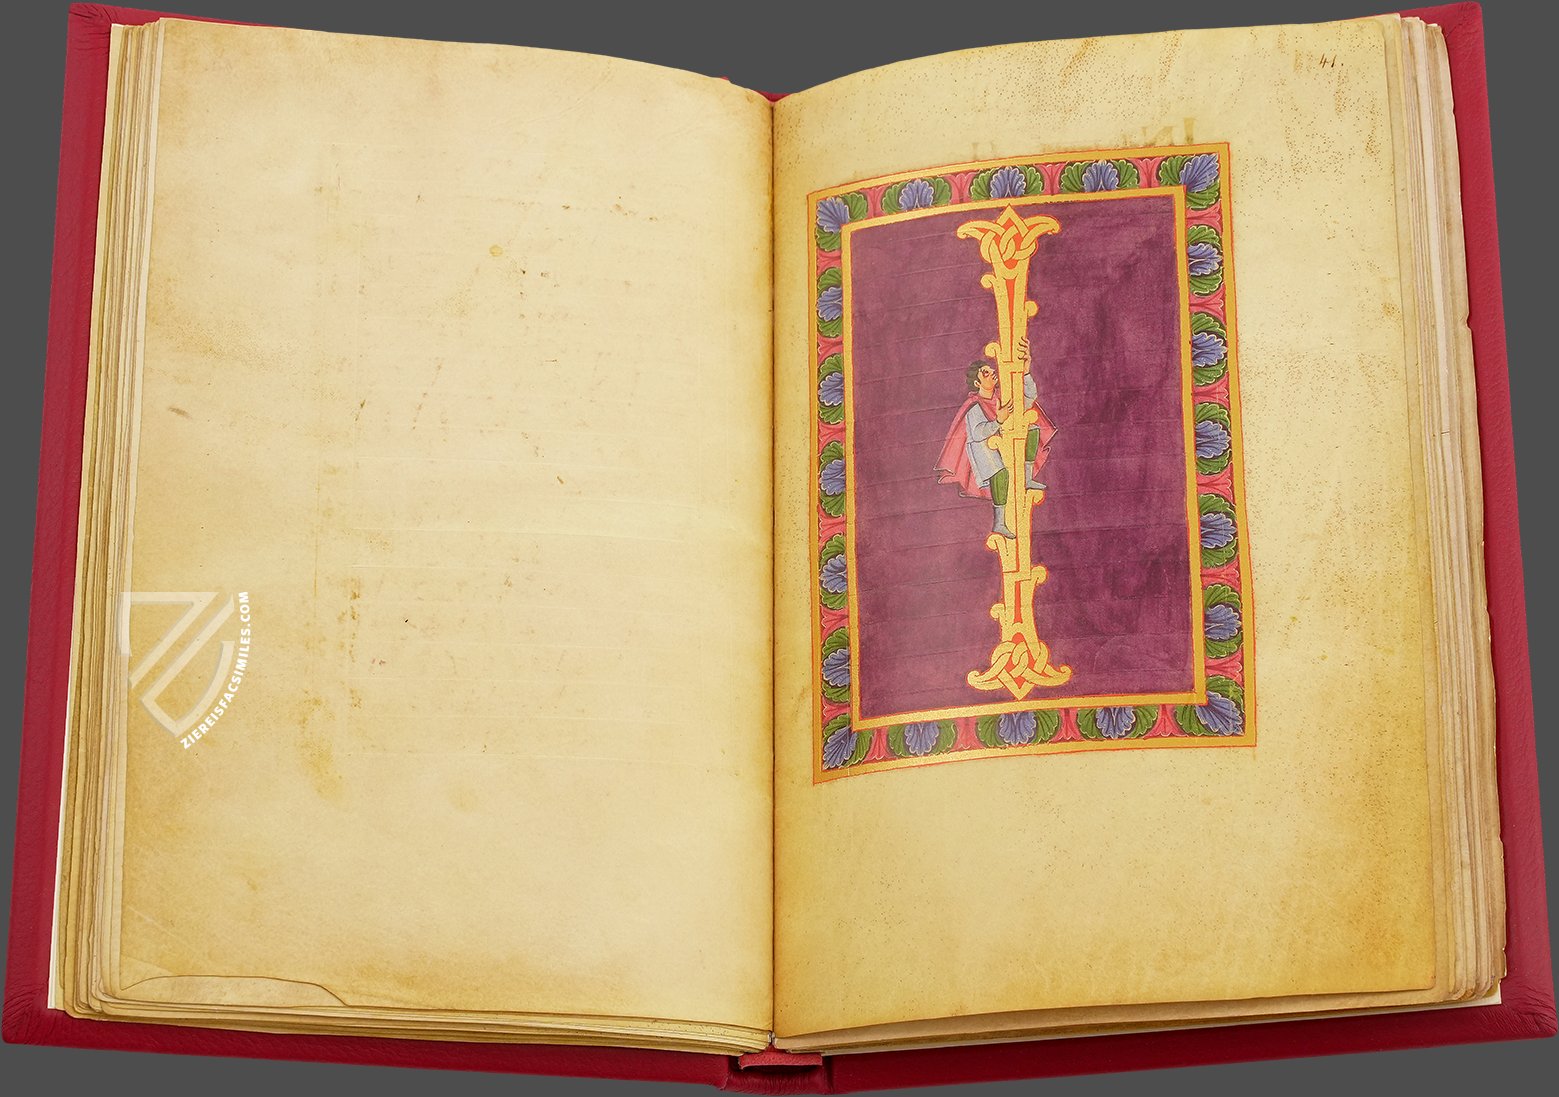 41.
I
ZIEREISFACSIMILES.COM